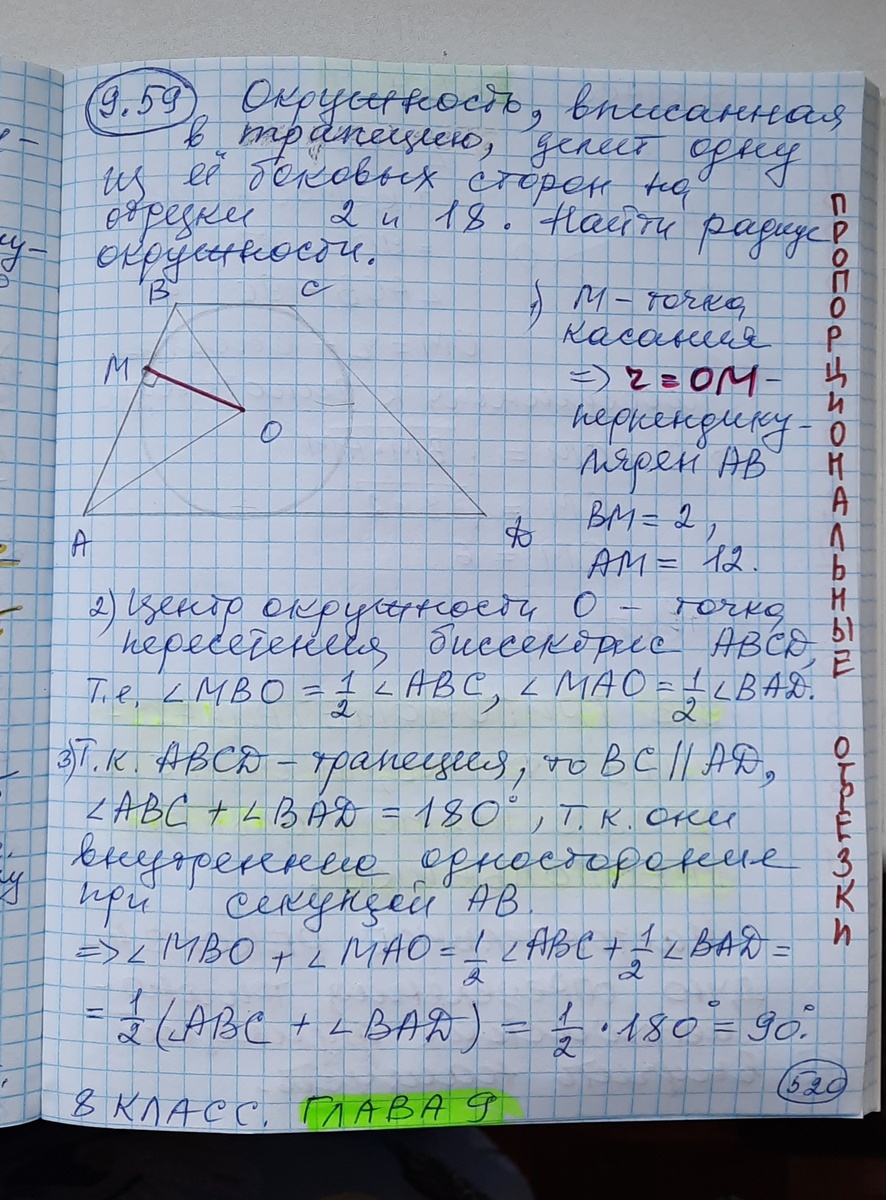 9.59 Окружность, вписанная
в трапецию, делит одну
из её боковых сторон на
отрезки 2 и 18. Найти радиус
окружности.
B C
M
O
A D
1) M - точка
касания
=> r = OM -
перпендику-
лярен AB
BM = 2,
AM = 12.
2) Центр окружности O - точка
пересечения биссектрис ABCD,
т.е. ∠MBO = 1/2 ∠ABC, ∠MAO = 1/2 ∠BAD.
3) Т.к. ABCD - трапеция, то BC || AD,
∠ABC + ∠BAD = 180°, т.к. они
внутренние односторонние
при секущей AB.
=> ∠MBO + ∠MAO = 1/2 ∠ABC + 1/2 ∠BAD =
= 1/2 (∠ABC + ∠BAD) = 1/2 · 180° = 90°.
520
8 КЛАСС. ГЛАВА 9
ПРОПОРЦИОНАЛЬНЫЕ ОТРЕЗКИ